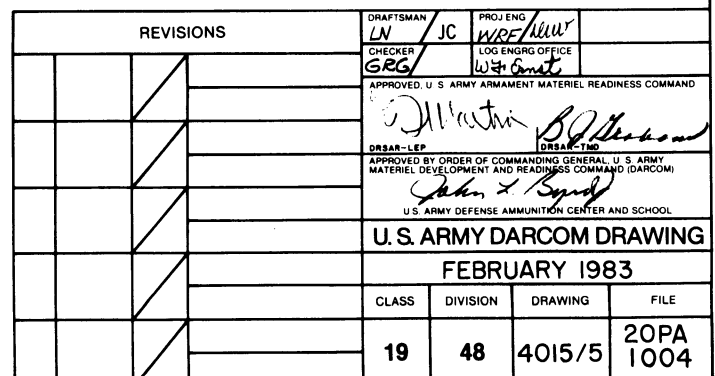 REVISIONS
DRAFTSMAN
LN
JC
PROJ ENG
WRF
CHECKER
GRG
LOG ENGRG OFFICE
W F Ernst
APPROVED, U S ARMY ARMAMENT MATERIEL READINESS COMMAND
DRSAR-LEP
DRSAR-TMD
APPROVED BY ORDER OF COMMANDING GENERAL, U. S. ARMY
MATERIEL DEVELOPMENT AND READINESS COMMAND (DARCOM)
John L. Byrd
U.S. ARMY DEFENSE AMMUNITION CENTER AND SCHOOL
U. S. ARMY DARCOM DRAWING
FEBRUARY 1983
CLASS DIVISION DRAWING FILE
19 48 4015/5 20PA
1004